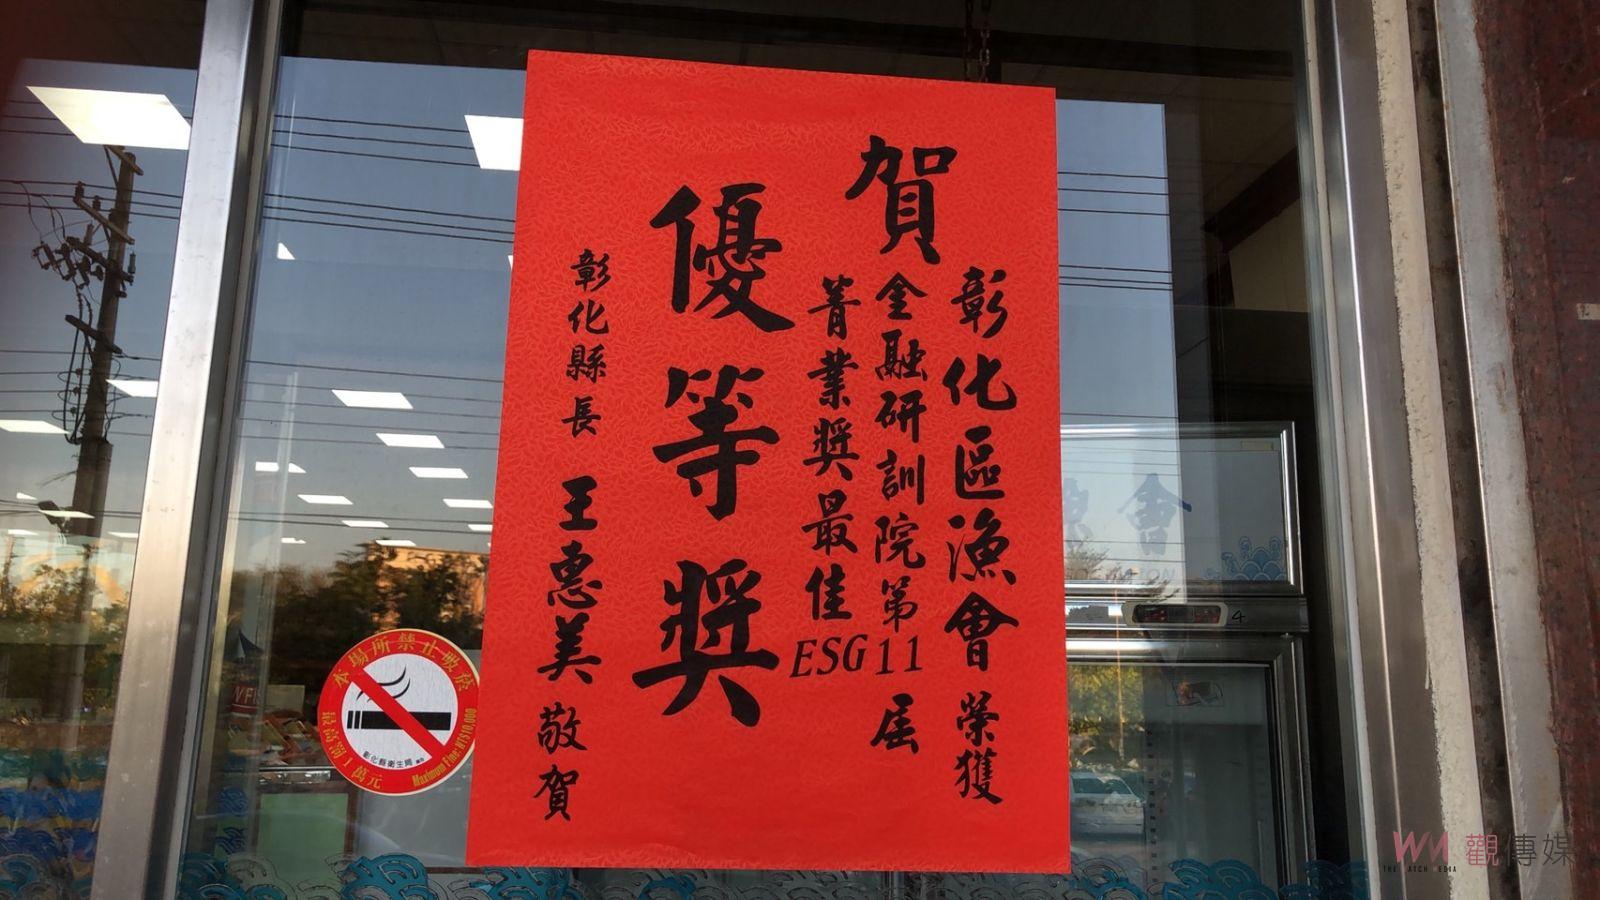 賀
彰化區漁會榮獲
金融研訓院第11屆
菁業獎最佳ESG
優等獎
彰化縣長 王惠美 敬賀
本場所禁止吸菸
最高罰1萬元
Maximum Fine: NT$10,000
彰化縣衛生局
4
觀傳媒
THE WATCH MEDIA